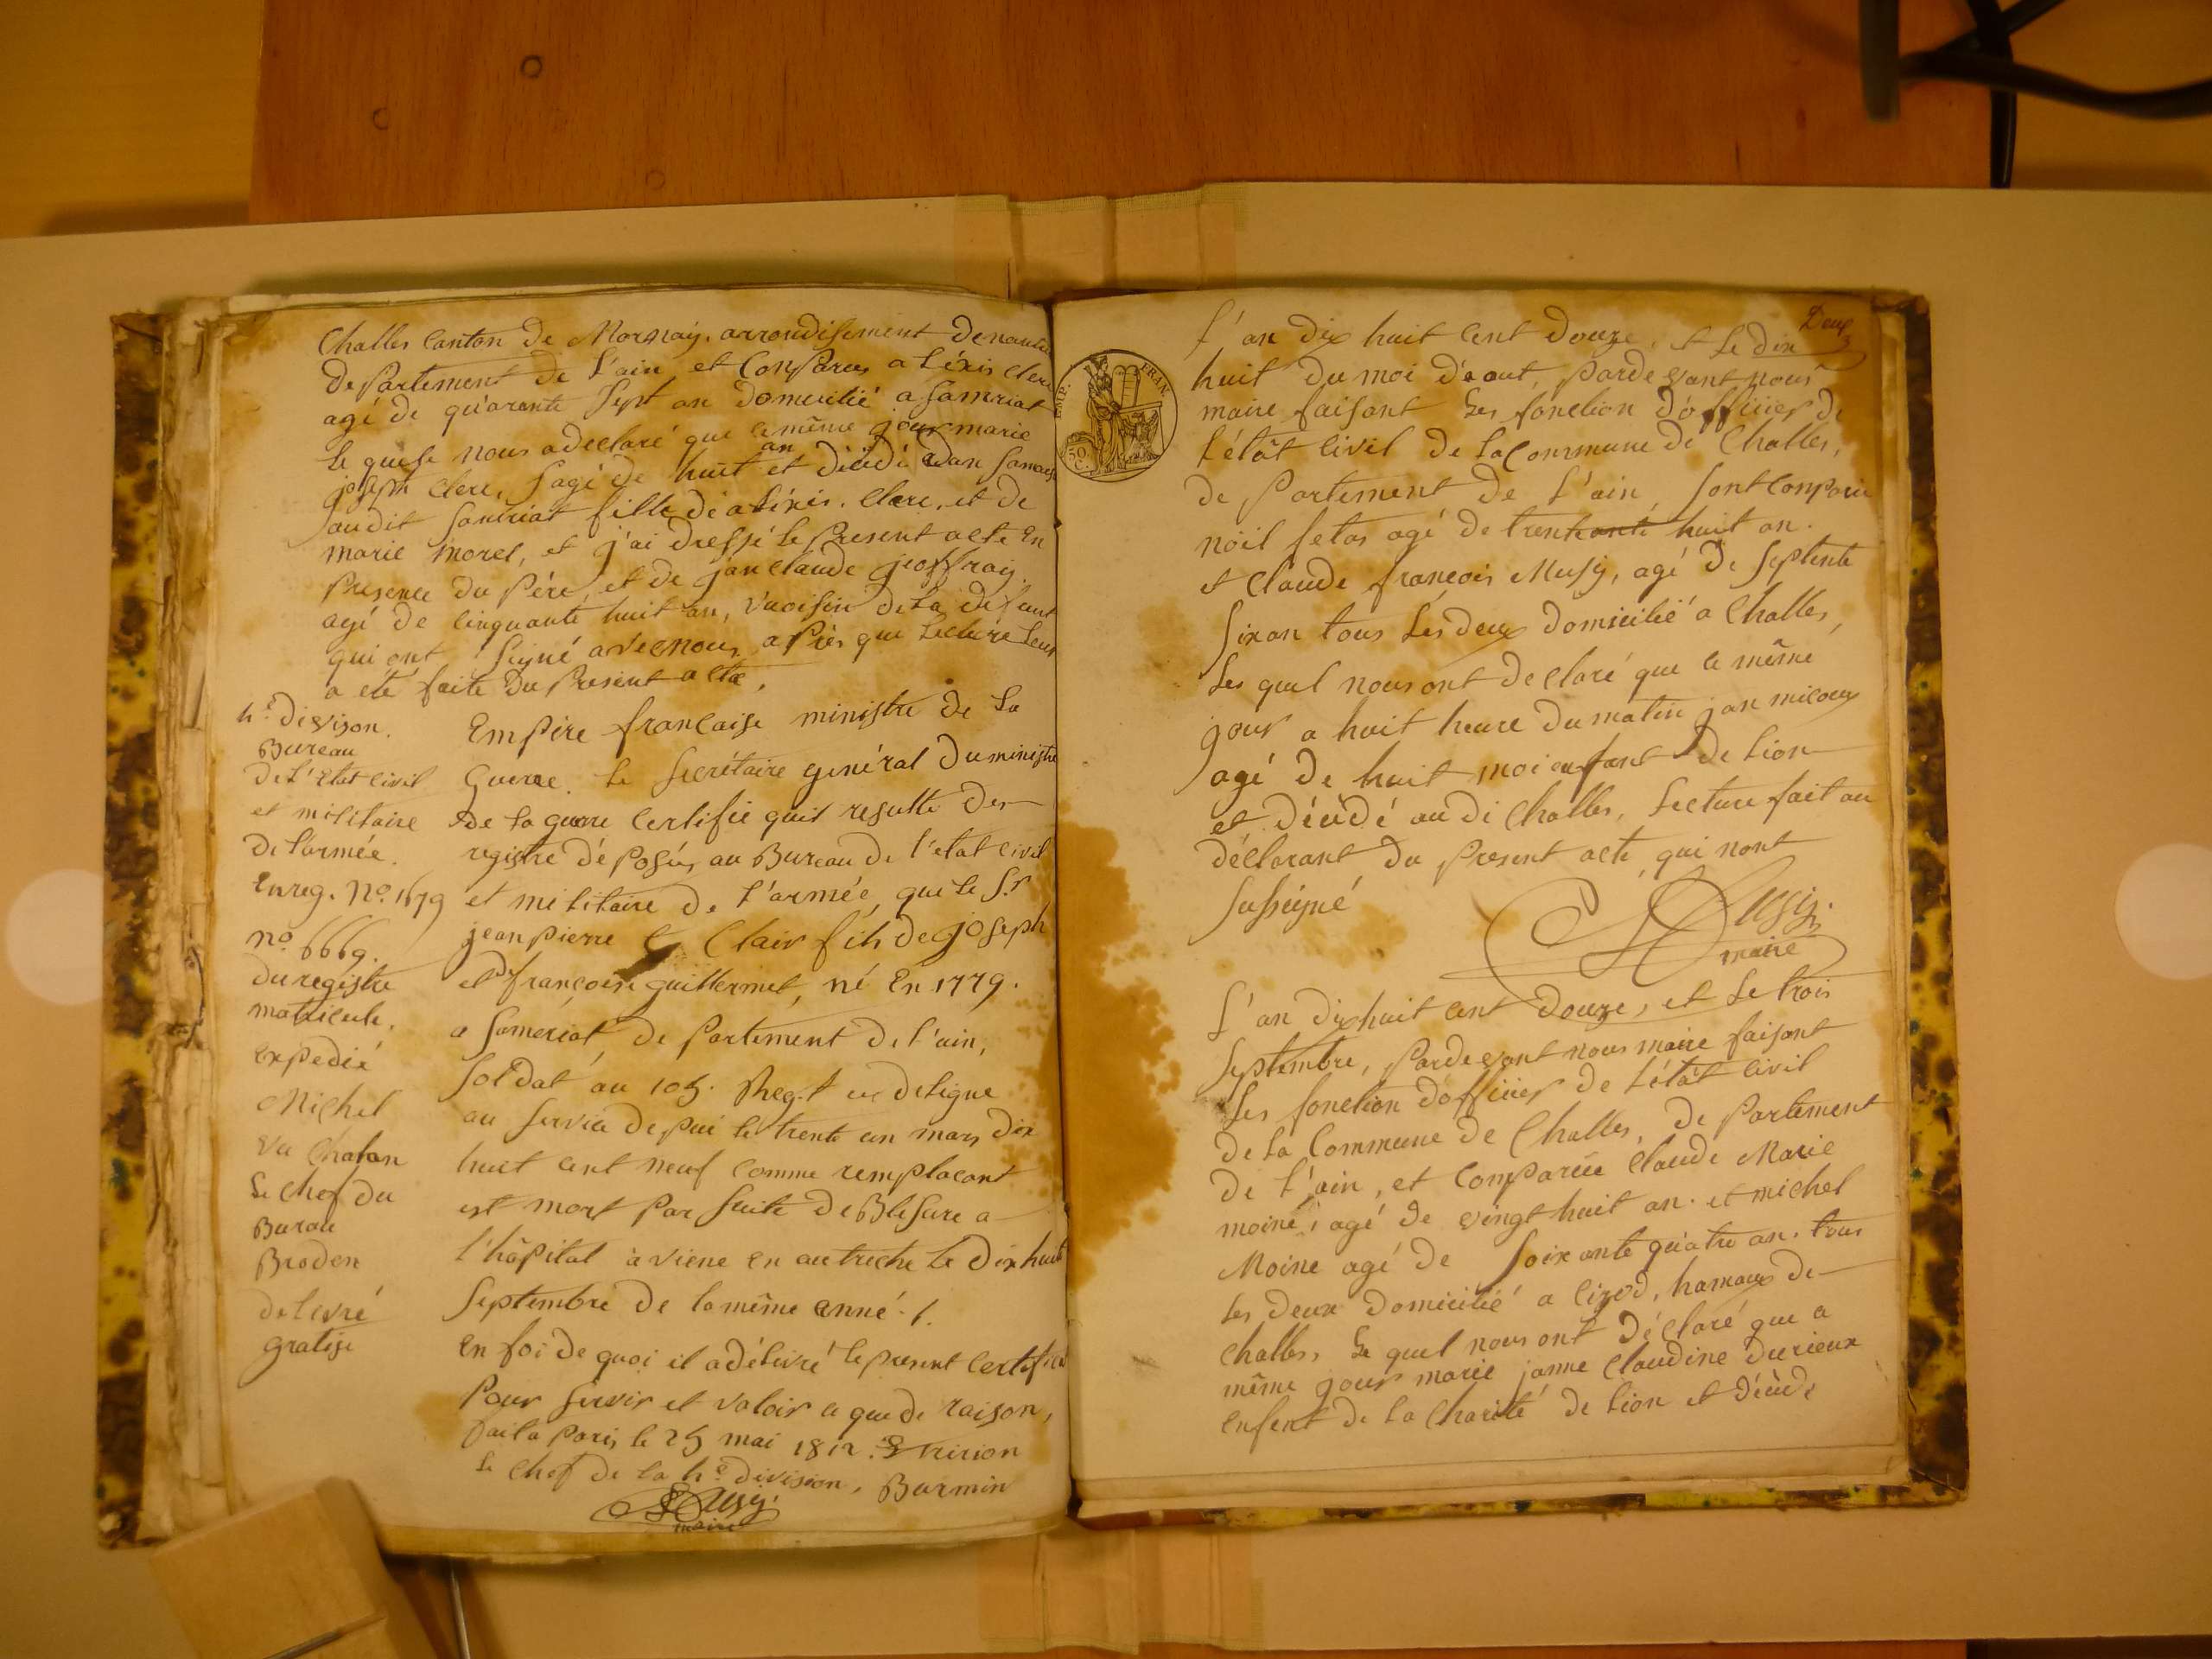 Challes Canton de Mornay. arrondisement de nantua
departement de L'ain et Conparus aléxis Clerc
agé de quarante sept an domicilié a Samriat
Le quele nous a déclaré que le même jour marie
joseph Clerc, Sagé de huit an et décédé dan
audit Samriat fille de aléxis. Clerc, et de
marie morel, et j'ai dressé le present acte En
Presence du Pére, et de jan claude jeoffray.
agé de cinquante huit an, vaoisin de La defunt
qui ont Signé avec nous, aprés que Lecture Leur
a eté faite du Present acte,
4.e divizon.
Bureau
de L'Etat civil
et militaire
de L'armée.
Enreg. No. 1679
no. 6669.
du registre
matricule.
Expedié
Michel
vu Chatan
Le Chef du
Burau
Broden
delivré
gratise
Empire francaise ministre de La
Guerre. Le secrétaire general du ministre
de La guerre Certifie quil resulte des
registre déposés au Bureau de l'etat civil
et militaire de L'armée, que Le S.r
jean pierre Clair fils de joseph
et françoise guillermet, né En 1779.
a Sameriat departement de L'ain,
Soldat au 105. Reg.t de Ligne
au Service depui le trente un mars dix
huit cent neuf comme remplacant
est mort par Suite de Blesure a
l'hôpital à viene en autriche Le dix huit
Septembre de la même anné.
En foi de quoi il a délivré le present certificat
Pour Servir et valoir ce que de raison,
fait a Paris le 25 mai 1812.
Le Chef de la 4.e division, Barmin
Musy.
maire
Deux
EMP. FRAN.
50 C.
L'an dix huit cent douze, et Le dix
huit du moi d'aout, pardevant nous
maire faisant Les fonction d'officier de
L'étât civil de La Commune de Challes,
departement de L'ain, sont Conparu
noil fetas agé de trent huit an.
et Claude françois Musy, agé de Septente
Six an tous Les deux domicilié a Challes,
Les quel nous ont declaré que le même
jour a huit heure du matin jan micoux
agé de huit moi enfant de Lion
et décédé au di Challes, Lecture fait au
déclarant du present acte, qui nont
Susseigné
Musy.
maire
L'an dix huit cent douze, et Le trois
Septembre, pardevant nous maire faisant
Les fonction d'officier de L'étât civil
de La Commune de Challes, departement
de L'ain, et Comparûe Claude Marie
moine, agé de vingt huit an. et michel
Moine agé de Soixante quatre an. tous
Les deux domicilié a Cizod, hamaux de
Challes, Le quel nous ont déclaré que a
même jour marie janne Claudine durieux
enfent de La Charité de Lion et décédé